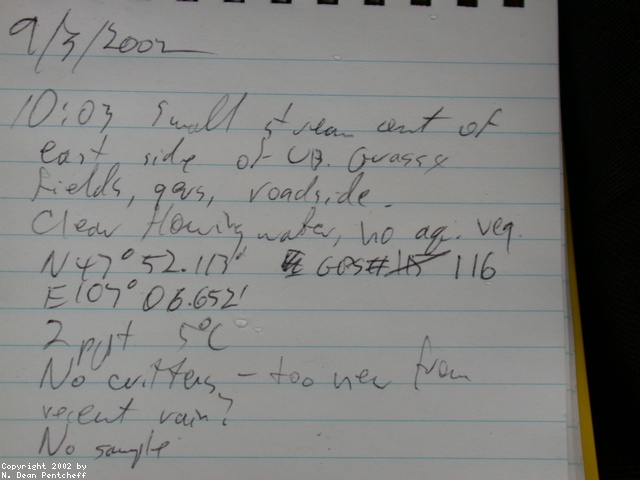 9/3/2002
10:03 Small stream out of
east side of UB. Grassy
fields, gers, roadside.
Clear flowing water, no aq. veg.
N 47° 52.113' GPS# 116
E107° 06.652'
2 ppt 5°C
No critters - too new from
recent rain?
No sample
Copyright 2002 by
N. Dean Pentcheff